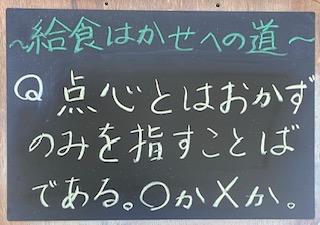 ～給食はかせへの道～
Q 点心とはおかず
のみを指すことば
である。〇か✕か。